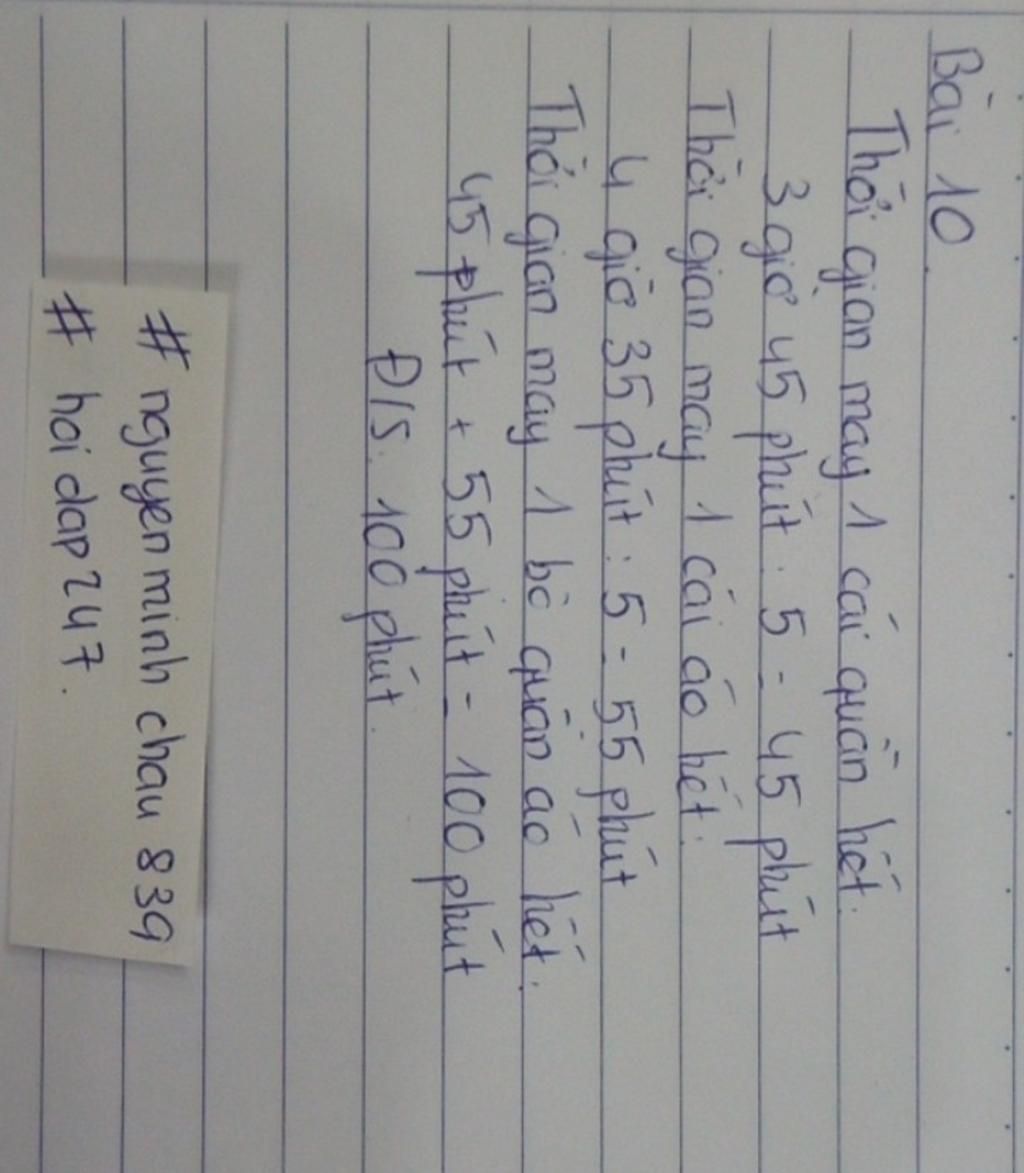 Bài 10
Thời gian may 1 cái quần hết:
3 giờ 45 phút : 5 = 45 phút
Thời gian may 1 cái áo hết:
4 giờ 35 phút : 5 = 55 phút
Thời gian may 1 bộ quần áo hết:
45 phút + 55 phút = 100 phút
Đ/S: 100 phút.
# nguyenminhchau839
# hoidap247.